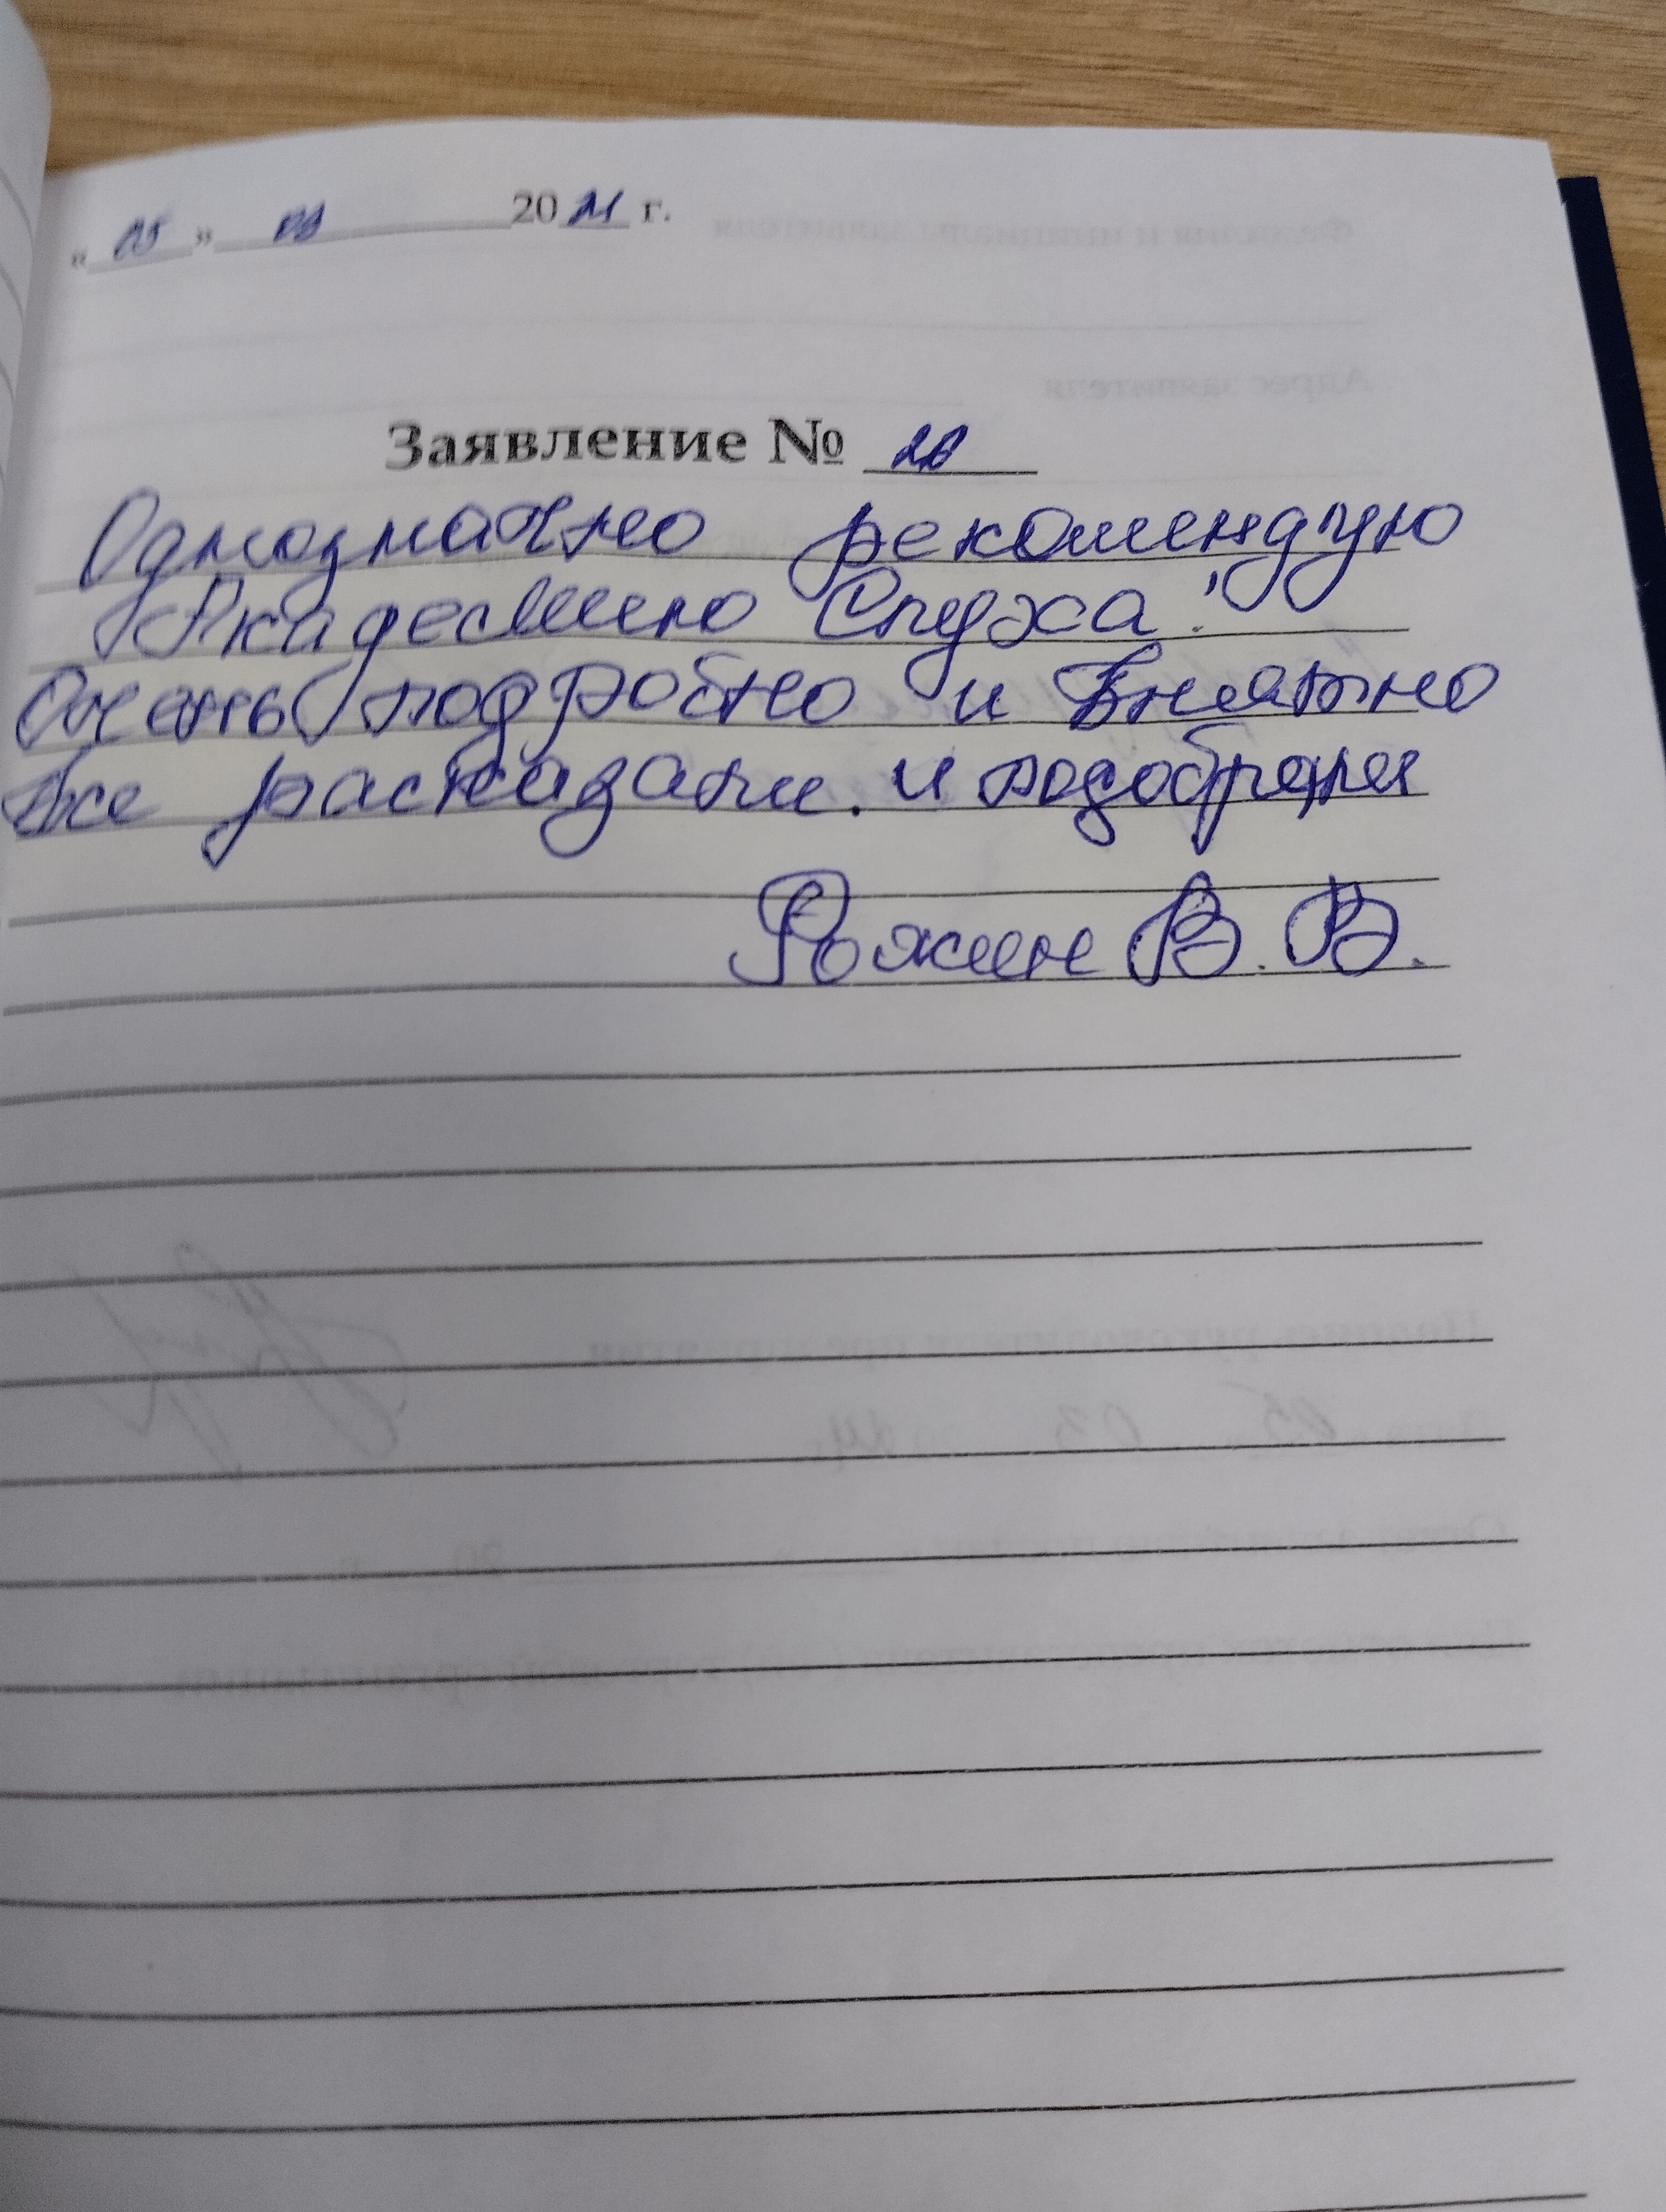 « 05 » 03 2021 г.
Заявление № 20
Однозначно рекомендую
Академию Слуха!
Очень подробно и внятно
все расказали. и подобрали
Рожин В. В.